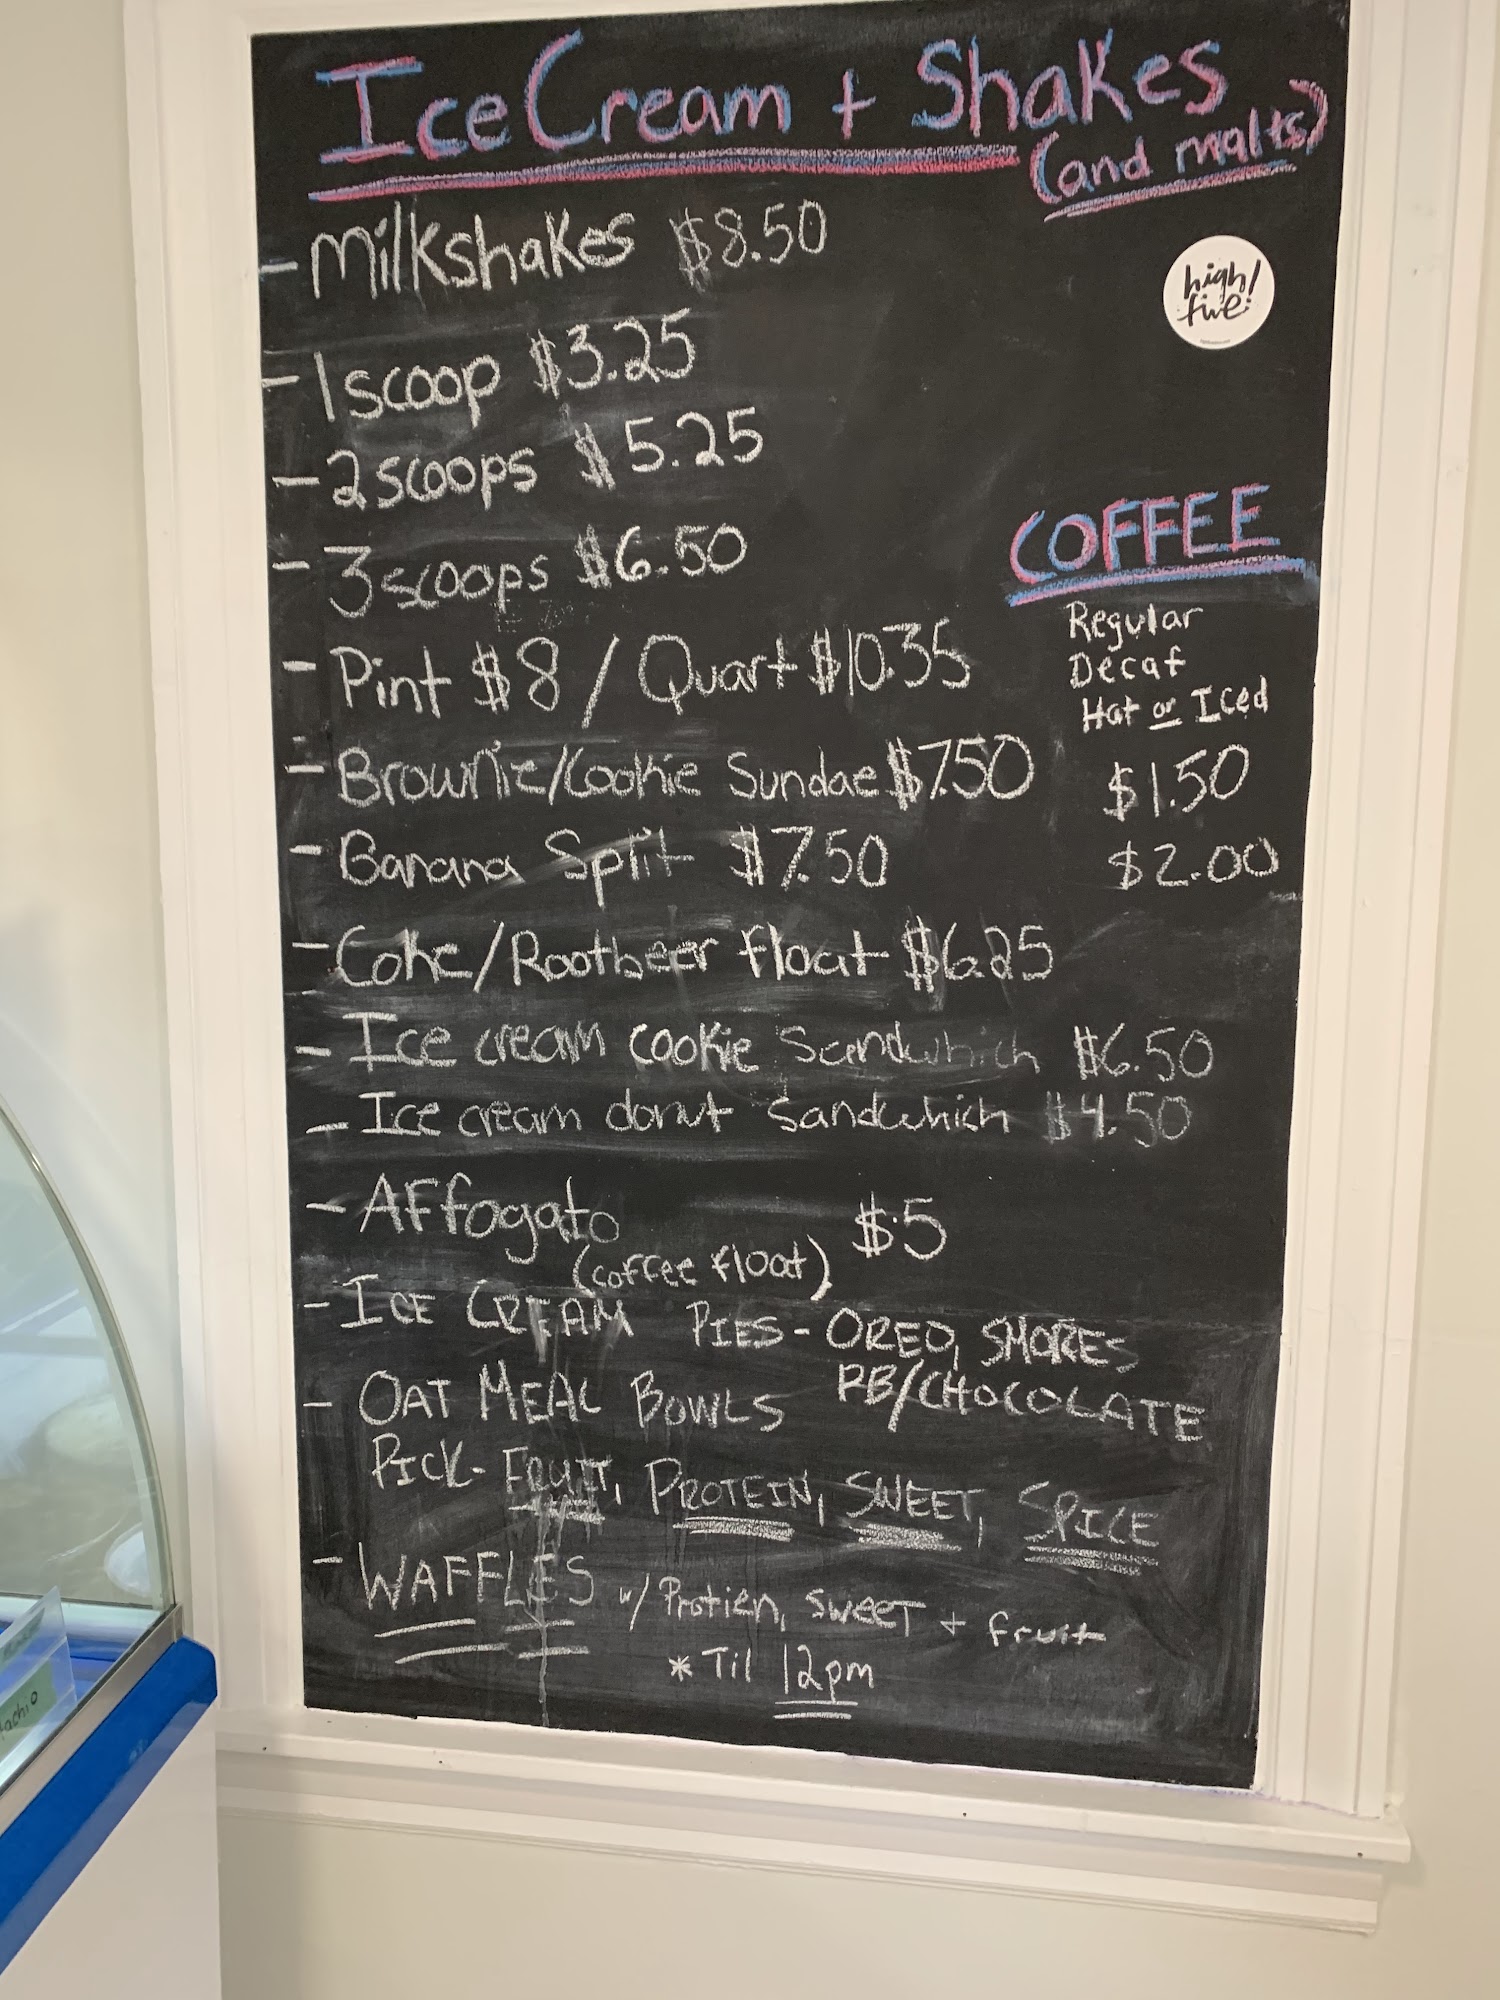 Ice Cream + Shakes
(and malts)
high/
five!
- Milkshakes $8.50
- 1 scoop $3.25
- 2 scoops $5.25
- 3 scoops $6.50
- Pint $8 / Quart $10.35
- Brownie/Cookie Sundae $7.50
- Banana Split $7.50
- Coke/Rootbeer float $6.25
- Ice cream cookie Sandwhich $6.50
- Ice cream donut Sandwhich $4.50
- Affogato $5
(coffee float)
- ICE CREAM PIES - OREO, SMORES
PB/CHOCOLATE
- OAT MEAL BOWLS
PICK - FRUIT, PROTEIN, SWEET, SPICE
- WAFFLES w/ Protien, sweet + fruit
* Til 12pm
COFFEE
Regular
Decaf
Hot or Iced
$1.50
$2.00
tachio